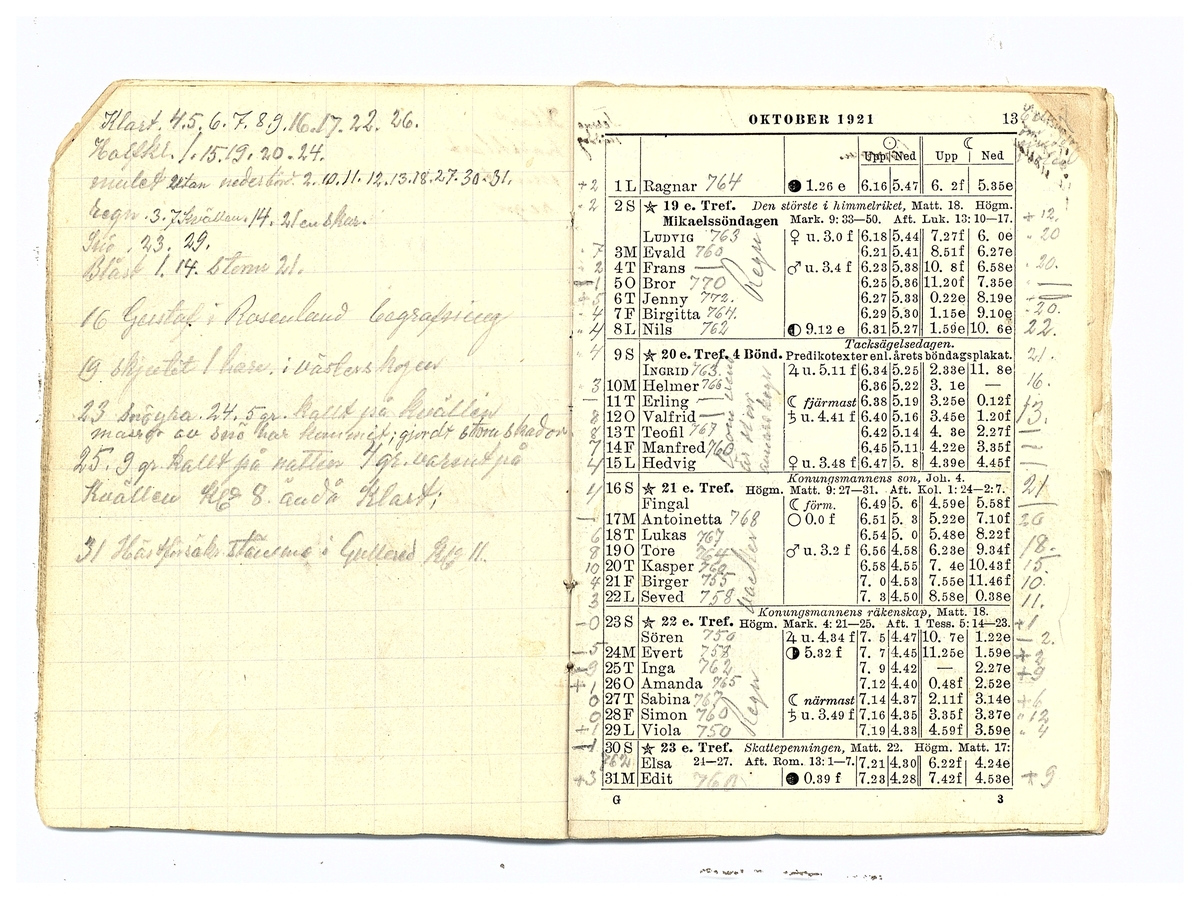 Klart. 4.5.6.7.8.9.16.17.22.26.
Halfkl. 1.15.19.20.24.
mulet utan nederbörd. 2.10.11.12.13.18.27.30.31.
regn. 3.7 Kvällen. 14. 21 en skur.
Snö. 23. 29.
Blåst 1. 14. Storm 21.
16 Gustaf i Rosenlund begrafning
19 skjutit 1 hare. i västerskogen
23 snöyra. 24. 5 gr. kallt på kvällen
massor av snö har kommit; gjordt stormskador
25. 9 gr. kallt på natten 7 gr. varmt på
Kvällen Klg 8. ändå Klart;
31 Hästförsäkr. stämma i Gullered Klg 11.
OKTOBER 1921 13
☉ ☾
Upp Ned Upp Ned
+2 1 L Ragnar 764 ● 1.26 e 6.16 5.47 6. 2f 5.35e
2 S ★ 19 e. Tref. Den störste i himmelriket, Matt. 18. Högm.
Mikaelssöndagen Mark. 9: 33—50. Aft. Luk. 13: 10—17. +12.
LUDVIG 763 ♀ u. 3.0 f 6.18 5.44 7.27f 6. 0e 20
3M Evald 760 6.21 5.41 8.51f 6.27e
4 T Frans — ♂ u. 3.4 f 6.23 5.38 10. 8f 6.58e 20.
5 O Bror 770 6.25 5.36 11.20f 7.35e
6 T Jenny 772. 6.27 5.33 0.22e 8.19e
7 F Birgitta 764. 6.29 5.30 1.15e 9.10e 20.
4 8 L Nils 762 ◐ 9.12 e 6.31 5.27 1.59e 10. 6e 22.
Regn
4 9 S ★ 20 e. Tref. 4 Bönd. Tacksägelsedagen. Predikotexter enl. årets böndagsplakat. 21.
INGRID 763. ♃ u. 5.11 f 6.34 5.25 2.33e 11. 8e
3 10M Helmer 766 6.36 5.22 3. 1e — 16.
11 T Erling — ☾ fjärmast 6.38 5.19 3.25e 0.12f
12 O Valfrid — ♄ u. 4.41 f 6.40 5.16 3.45e 1.20f 13.
13 T Teofil 767 6.42 5.14 4. 3e 2.27f —
7 14 F Manfred 760 6.45 5.11 4.22e 3.35f —
4 15 L Hedvig ♀ u. 3.48 f 6.47 5. 8 4.39e 4.45f
16 S ★ 21 e. Tref. Konungsmannens son, Joh. 4. Högm. Matt. 9: 27—31. Aft. Kol. 1: 24—2: 7. 21
Fingal ☾ förm. 6.49 5. 6 4.59e 5.58f
17M Antoinetta 768 ○ 0.0 f 6.51 5. 3 5.22e 7.10f 20
6 18 T Lukas 767 6.54 5. 0 5.48e 8.22f
8 19 O Tore 764 ♂ u. 3.2 f 6.56 4.58 6.23e 9.34f 18.
10 20 T Kasper 760 6.58 4.55 7. 4e 10.43f 15
4 21 F Birger 755 7. 0 4.53 7.55e 11.46f 10.
3 22 L Seved 758 7. 3 4.50 8.58e 0.38e 11.
vacker
-0 23 S ★ 22 e. Tref. Konungsmannens räkenskap, Matt. 18. Högm. Mark. 4: 21—25. Aft. 1 Tess. 5: 14—23. +1
Sören 750 ♃ u. 4.34 f 7. 5 4.47 10. 7e 1.22e - 2.
-5 24M Evert 758 ◑ 5.32 f 7. 7 4.45 11.25e 1.59e
9 25 T Inga 762 7. 9 4.42 — 2.27e +9
26 O Amanda 765 7.12 4.40 0.48f 2.52e
0 27 T Sabina 767 ☾ närmast 7.14 4.37 2.11f 3.14e +6
28 F Simon 760 ♄ u. 3.49 f 7.16 4.35 3.35f 3.37e 12
29 L Viola 750 7.19 4.33 4.59f 3.59e 4
Regn
30 S ★ 23 e. Tref. Skattepenningen, Matt. 22. Högm. Matt. 17:
762 Elsa 24—27. Aft. Rom. 13: 1—7. 7.21 4.30 6.22f 4.24e
+3 31M Edit 760 ● 0.39 f 7.23 4.28 7.42f 4.53e +9
G 3